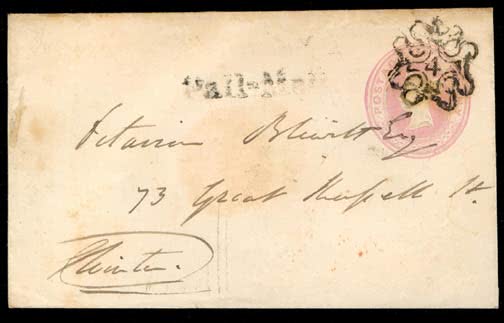 Pall-Mall
POST
4
Octavian Blewitt Esq
73 Great Russell St.